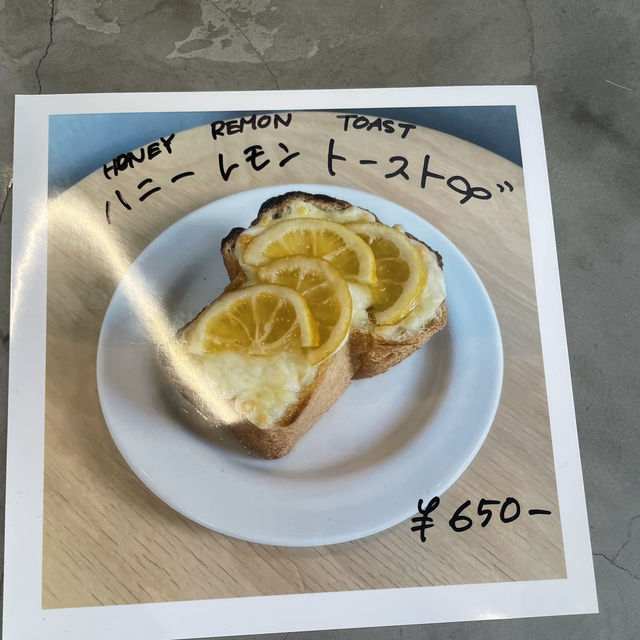 HONEY REMON TOAST
ハニーレモン トースト
¥650-